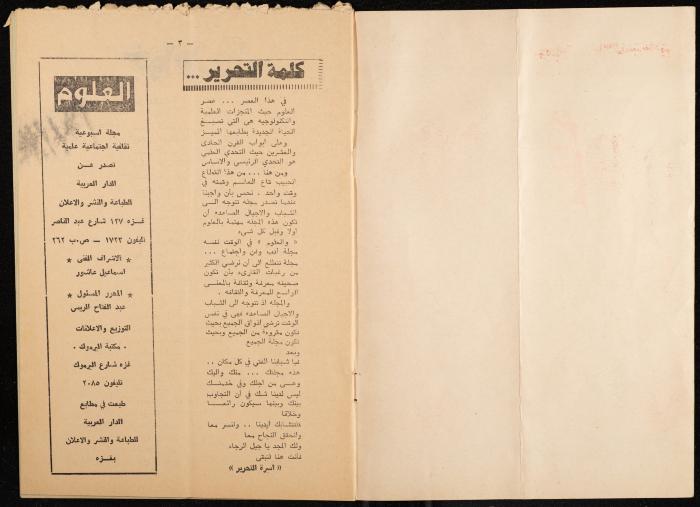 — ٣ —
كلمة التحرير ...
في هذا العصر ... عصر
العلوم حيث المنجزات العلمية
والتكنولوجيه هى التى تصبغ
الحياة الجديدة بطابعها المميز
وعلى أبواب القرن الحادى
والعشرين حيث التحدى العلمى
هو التحدى الرئيسى والاساسى
ومن هنا ... من هذا القطاع
الحبيب قطاع
وقت واحد . نحس بأن واجبنا
عندما نصدر مجلة تتوجه الى
الشباب والاجيال الصاعده أن
تكون هذه المجله مهتمة بالعلوم
أولا وقبل كل شىء
« والعلوم » في الوقت نفسه
مجلة أدب وفن واجتماع ...
مجلة تتطلع الى أن ترضي الكثير
من رغبات القارىء بأن تكون
صحيفة معرفة وثقافة بالمعنى
الواسع للمعرفة والثقافه .
والمجله اذ تتوجه الى الشباب
والاجيال الصاعده فهى في نفس
الوقت ترضى أذواق الجميع بحيث
تكون مقروءة من الجميع وبحيث
تكون مجلة الجميع
وبعد
فيا شبابنا الفتي في كل مكان ..
هذه مجلتك ... منك واليك
وهى من أجلك وفى خدمتك
ليس لدينا شك في أن التجاوب
بينك وبينها سيكون رائعا
وخلاقا
فلتتشابك أيدينا .. ولنسر معا
ولنحقق النجاح معا
ولك المجد يا جيل الرجاء
فأنت هنا لتبقى
« أسرة التحرير »
العلوم
مجلة اسبوعية
ثقافية اجتماعية علمية
تصدر عن
الدار العربية
للطباعة والنشر والاعلان
غزه ١٢٧ شارع عبد الناصر
تليفون ١٧٢٣ – ص.ب ٢٦٢
* الاشراف الفنى *
اسماعيل عاشور
* المحرر المسئول *
عبد الفتاح الريسي
التوزيع والاعلانات
. مكتبة اليرموك .
غزه شارع اليرموك
تليفون ٢٠٨٥
طبعت في مطابع
الدار العربية
للطباعة والنشر والاعلان
بغزه